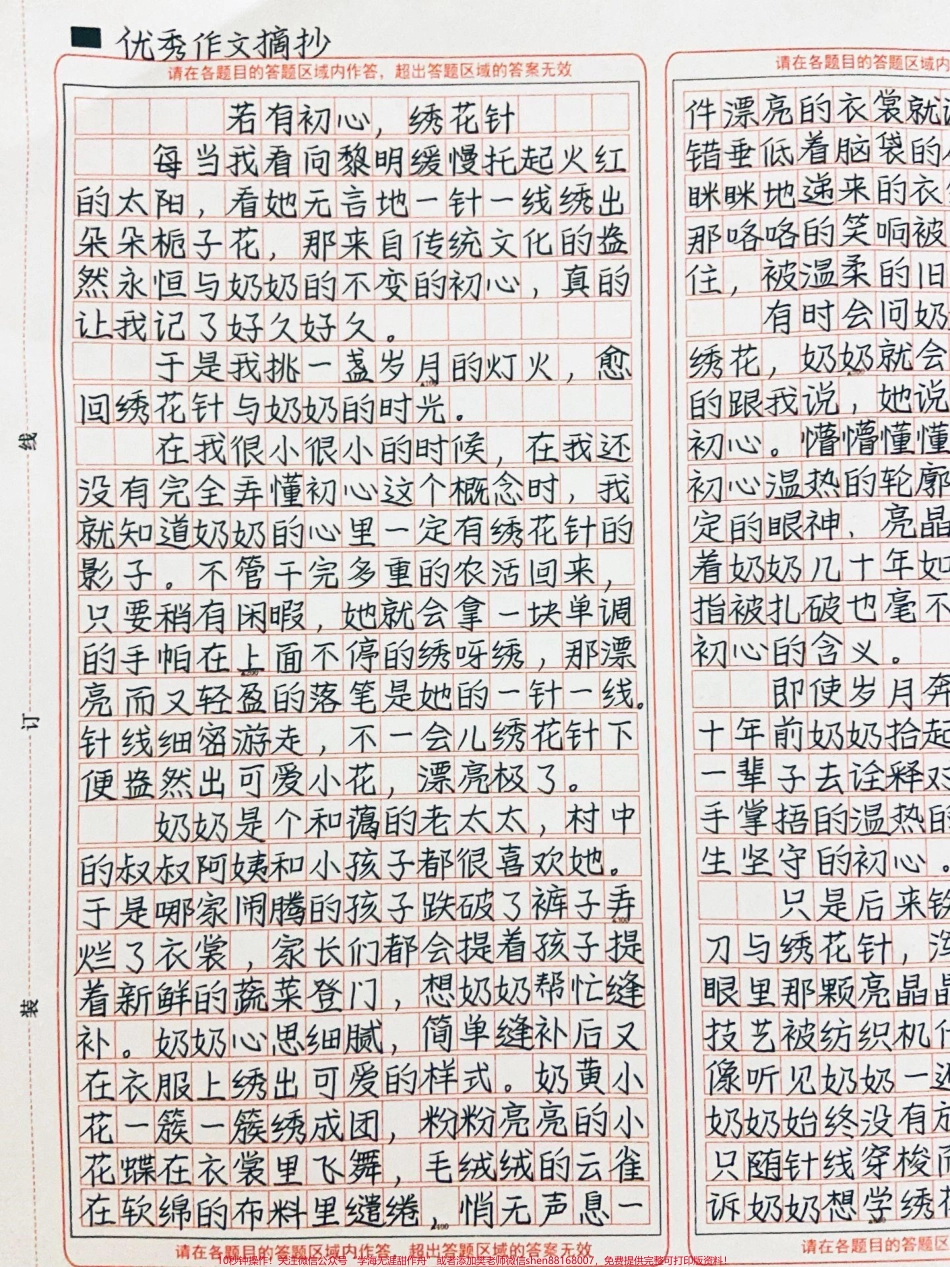 优秀作文摘抄
请在各题目的答题区域内作答，超出答题区域的答案无效
若有初心，绣花针
每当我看向黎明缓慢托起火红
的太阳，看她无言地一针一线绣出
朵朵栀子花，那来自传统文化的盎
然永恒与奶奶的不变的初心，真的
让我记了好久好久。
于是我挑一盏岁月的灯火，愈
回绣花针与奶奶的时光。
在我很小很小的时候，在我还
没有完全弄懂初心这个概念时，我
就知道奶奶的心里一定有绣花针的
影子。不管干完多重的农活回来，
只要稍有闲暇，她就会拿一块单调
的手帕在上面不停的绣呀绣，那漂
亮而又轻盈的落笔是她的一针一线。
针线细密游走，不一会儿绣花针下
便盎然出可爱小花，漂亮极了。
奶奶是个和蔼的老太太，村中
的叔叔阿姨和小孩子都很喜欢她。
于是哪家闹腾的孩子跌破了裤子弄
烂了衣裳，家长们都会提着孩子提
着新鲜的蔬菜登门，想奶奶帮忙缝
补。奶奶心思细腻，简单缝补后又
在衣服上绣出可爱的样式。奶黄小
花一簇一簇绣成团，粉粉亮亮的小
花蝶在衣裳里飞舞，毛绒绒的云雀
在软绵的布料里缱绻，悄无声息一
请在各题目的答题区域内作答，超出答题区域的答案无效
请在各题目的答题区域内
件漂亮的衣裳就
错垂低着脑袋的
眯眯地递来的衣
那咯咯的笑响被
住，被温柔的旧
有时会问奶
绣花，奶奶就会
的跟我说，她说
初心。懵懵懂懂
初心温热的轮廓
定的眼神、亮晶
着奶奶几十年如
指被扎破也毫不
初心的含义。
即使岁月奔
十年前奶奶拾起
一辈子去诠释对
手掌捂的温热的
生坚守的初心。
只是后来铁
刀与绣花针，浑
眼里那颗亮晶晶
技艺被纺织机
像听见奶奶一
奶奶始终没有
只随针线穿梭而
诉奶奶想学绣
请在各题目的答题区
线
订
装
10秒钟操作！关注微信公众号“学海无涯甜作舟”或者添加樊老师微信shen88168007，免费提供完整可打印版资料！